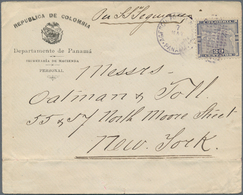 REPUBLICA DE COLOMBIA
Per SS Seguranca
Departamento de Panamá
SECRETARIA DE HACIENDA
PERSONAL
Messrs
Oatman & Toll
55 & 57 North Moore Street
New York.